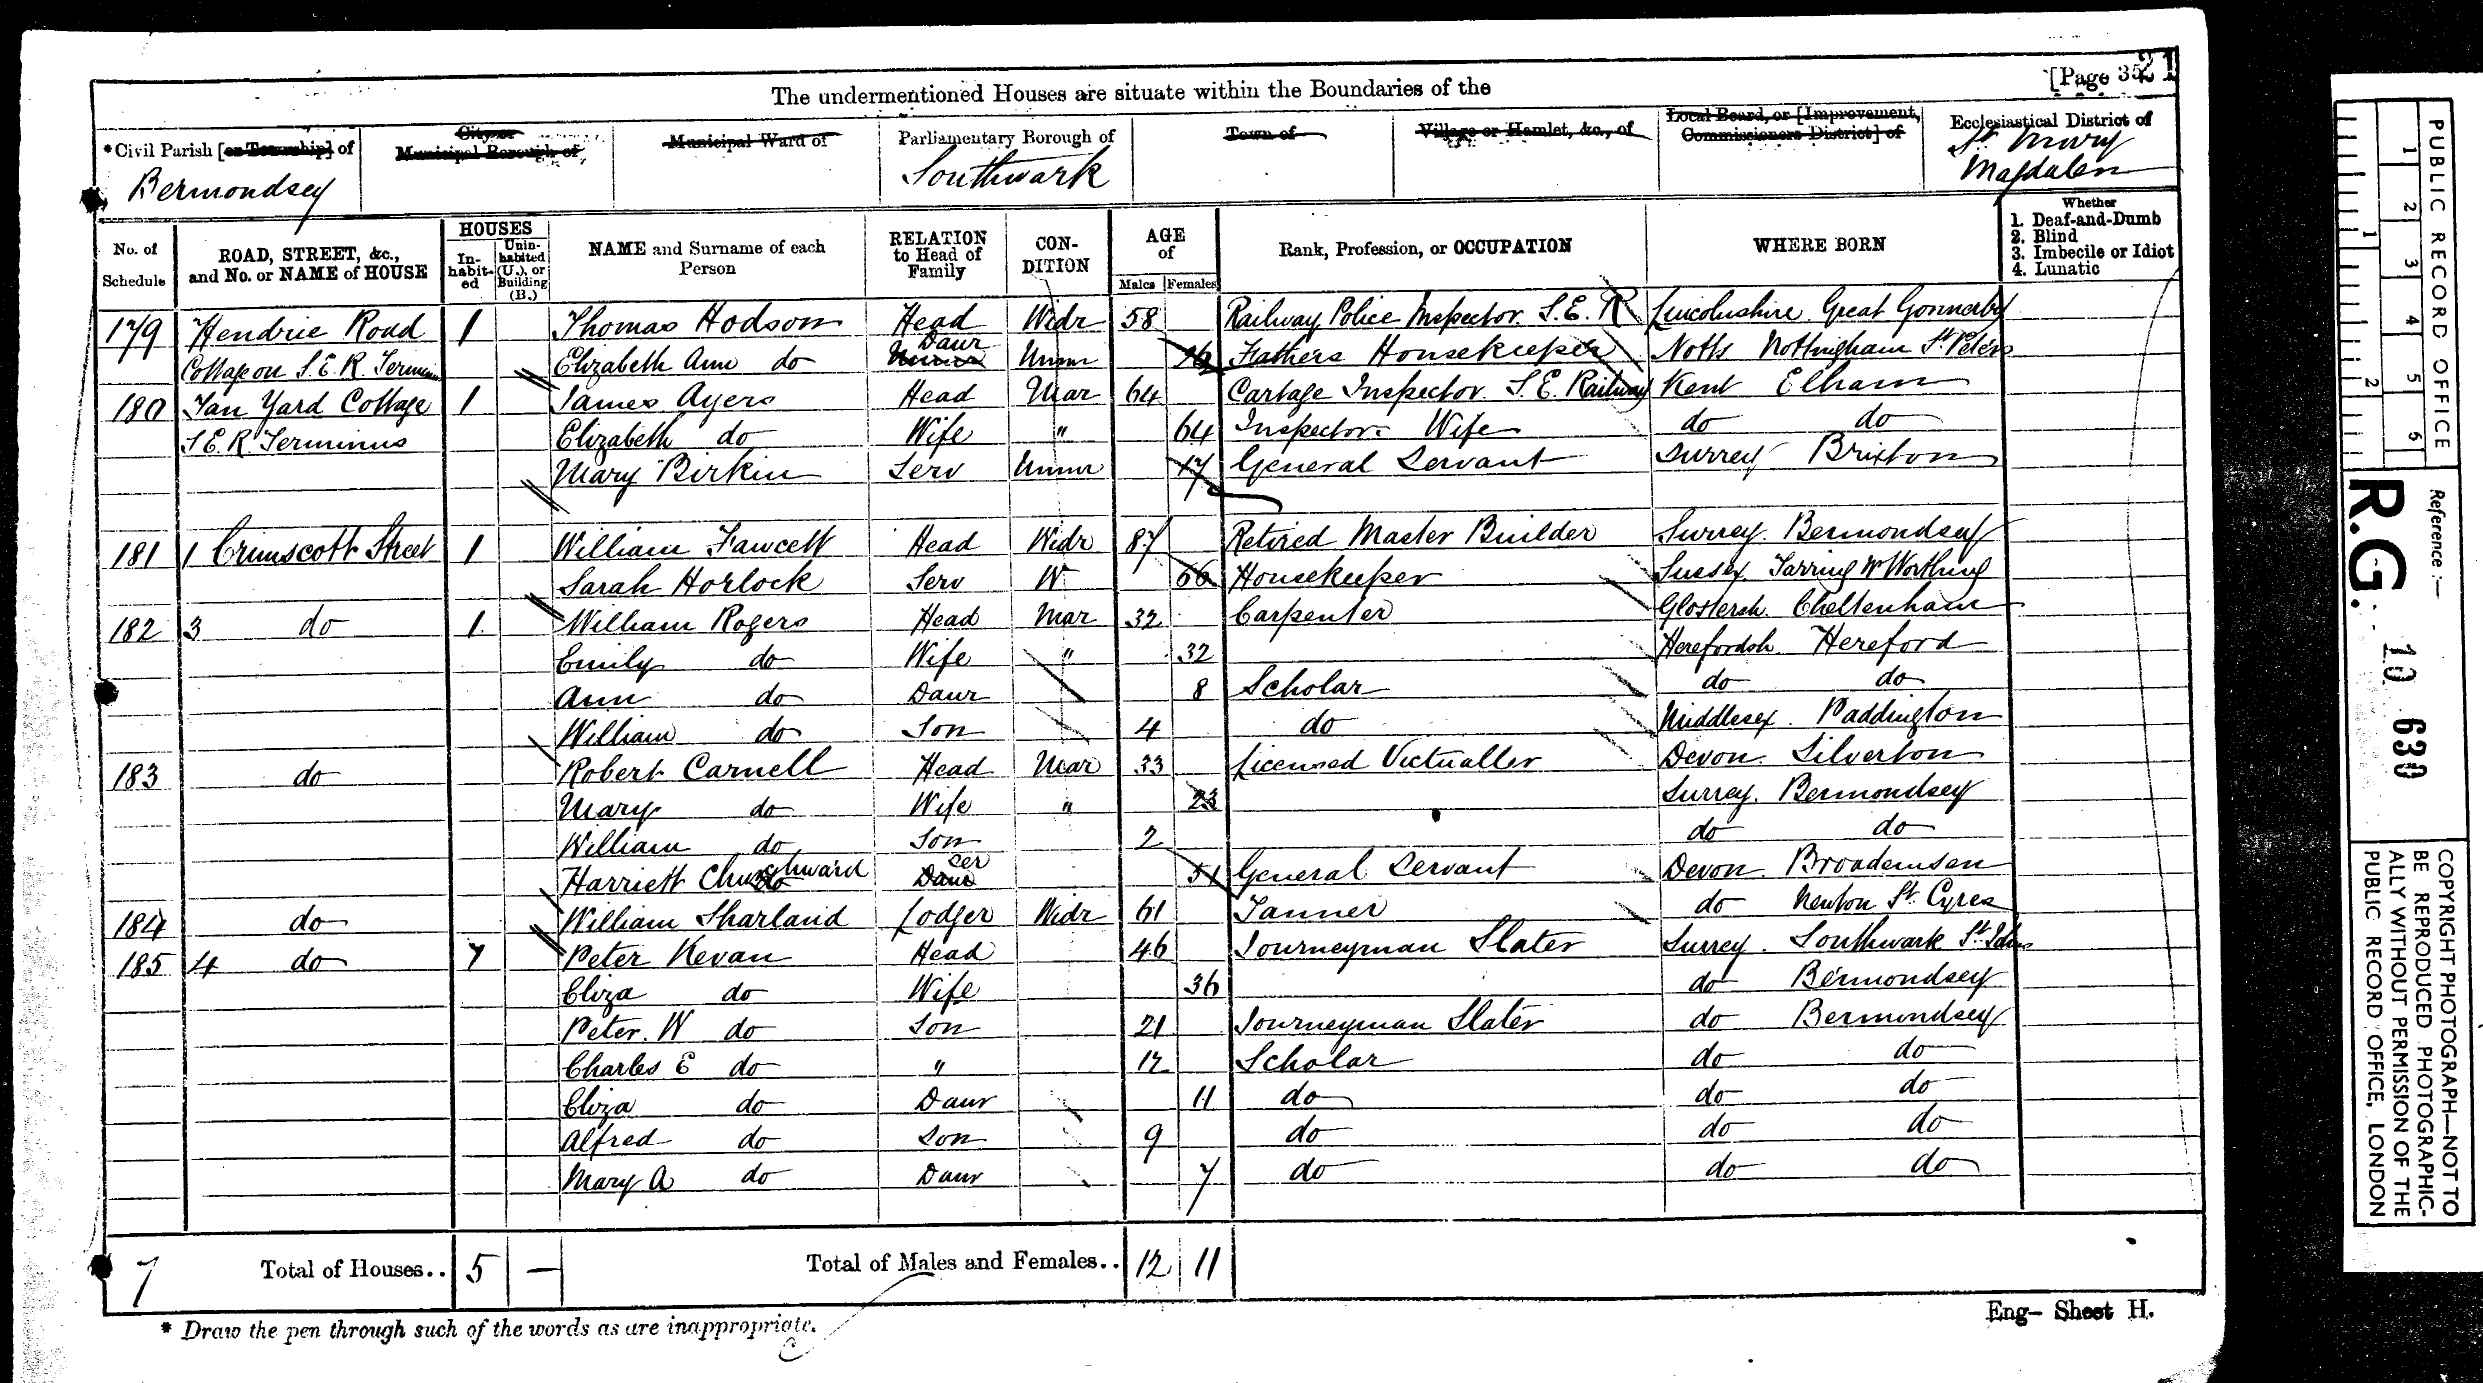 The undermentioned Houses are situate within the Boundaries of the
[Page 35 21
*Civil Parish [or Township] of
Bermondsey
City or Municipal Borough of
Municipal Ward of
Parliamentary Borough of
Southwark
Town of
Village or Hamlet, &c., of
Local Board, or [Improvement, Commissioners District] of
Ecclesiastical District of
St Mary Magdalen
No. of Schedule
ROAD, STREET, &c., and No. or NAME of HOUSE
HOUSES
In-habit-ed
Unin-habited (U.), or Building (B.)
NAME and Surname of each Person
RELATION to Head of Family
CON-DITION
AGE of
Males Females
Rank, Profession, or OCCUPATION
WHERE BORN
Whether
1. Deaf-and-Dumb
2. Blind
3. Imbecile or Idiot
4. Lunatic
179 Hendrie Road 1 Thomas Hodson Head Widr 58 Railway Police Inspector S.E.R Lincolnshire Great Gonnerby
Cottage on S.E.R. Elizabeth Ann do Daur Unmr Fathers Housekeeper Notts Nottingham St Peters
180 Tan Yard Cottage 1 James Ayers Head Mar 64 Cartage Inspector S.E. Railway Kent Elham
S.E.R. Terminus Elizabeth do Wife " 64 Inspectors Wife do do
Mary Birkin Serv Unmr 17 General Servant Surrey Brixton
181 1 Crimscott Street 1 William Fawcett Head Widr 87 Retired Master Builder Surrey Bermondsey
Sarah Horlock Serv W 66 Housekeeper Sussex Tarring W Worthing
182 3 do 1 William Rogers Head Mar 32 Carpenter Glostersh. Cheltenham
Emily do Wife " 32 Herefordsh Hereford
Ann do Daur 8 Scholar do do
William do Son 4 do Middlesex Paddington
183 do Robert Carnell Head Mar 33 Licensed Victualler Devon Silverton
Mary do Wife " 23 Surrey Bermondsey
William do Son 2 do do
Harriett Churchward Ser 51 General Servant Devon
184 do William Sharland Lodger Widr 61 Tanner do Newton St. Cyres
185 4 do 1 Peter Kevan Head 46 Journeyman Slater Surrey Southwark St Johns
Eliza do Wife 36 do Bermondsey
Peter. W do Son 21 Journeyman Slater do Bermondsey
Charles E do " 12 Scholar do do
Eliza do Daur 11 do do do
Alfred do Son 9 do do do
Mary A do Daur 7 do do do
7 Total of Houses.. 5 — Total of Males and Females.. 12 11
* Draw the pen through such of the words as are inappropriate.
Eng— Sheet H.
PUBLIC RECORD OFFICE
1 2 3 4 5 6
1 2
Reference:—
R.G. 10 630
COPYRIGHT PHOTOGRAPH—NOT TO
BE REPRODUCED PHOTOGRAPHIC-
ALLY WITHOUT PERMISSION OF THE
PUBLIC RECORD OFFICE, LONDON